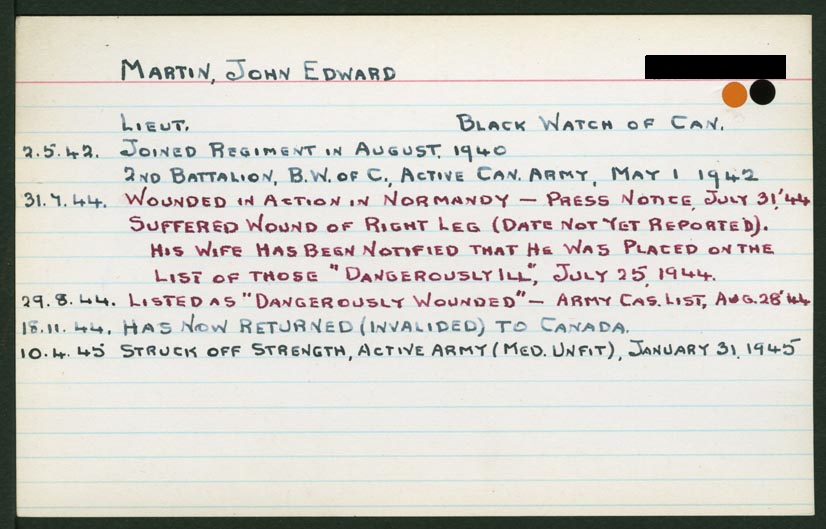 MARTIN, JOHN EDWARD
LIEUT. BLACK WATCH OF CAN.
2.5.42. JOINED REGIMENT IN AUGUST, 1940
2ND BATTALION, B.W. OF C., ACTIVE CAN. ARMY, MAY 1 1942
31.7.44. WOUNDED IN ACTION IN NORMANDY — PRESS NOTICE, JULY 31,'44
SUFFERED WOUND OF RIGHT LEG (DATE NOT YET REPORTED).
HIS WIFE HAS BEEN NOTIFIED THAT HE WAS PLACED ON THE
LIST OF THOSE "DANGEROUSLY ILL", JULY 25, 1944.
29.8.44. LISTED AS "DANGEROUSLY WOUNDED" — ARMY CAS. LIST, AUG. 28'44
18.11.44. HAS NOW RETURNED (INVALIDED) TO CANADA.
10.4.45 STRUCK OFF STRENGTH, ACTIVE ARMY (MED. UNFIT), JANUARY 31, 1945